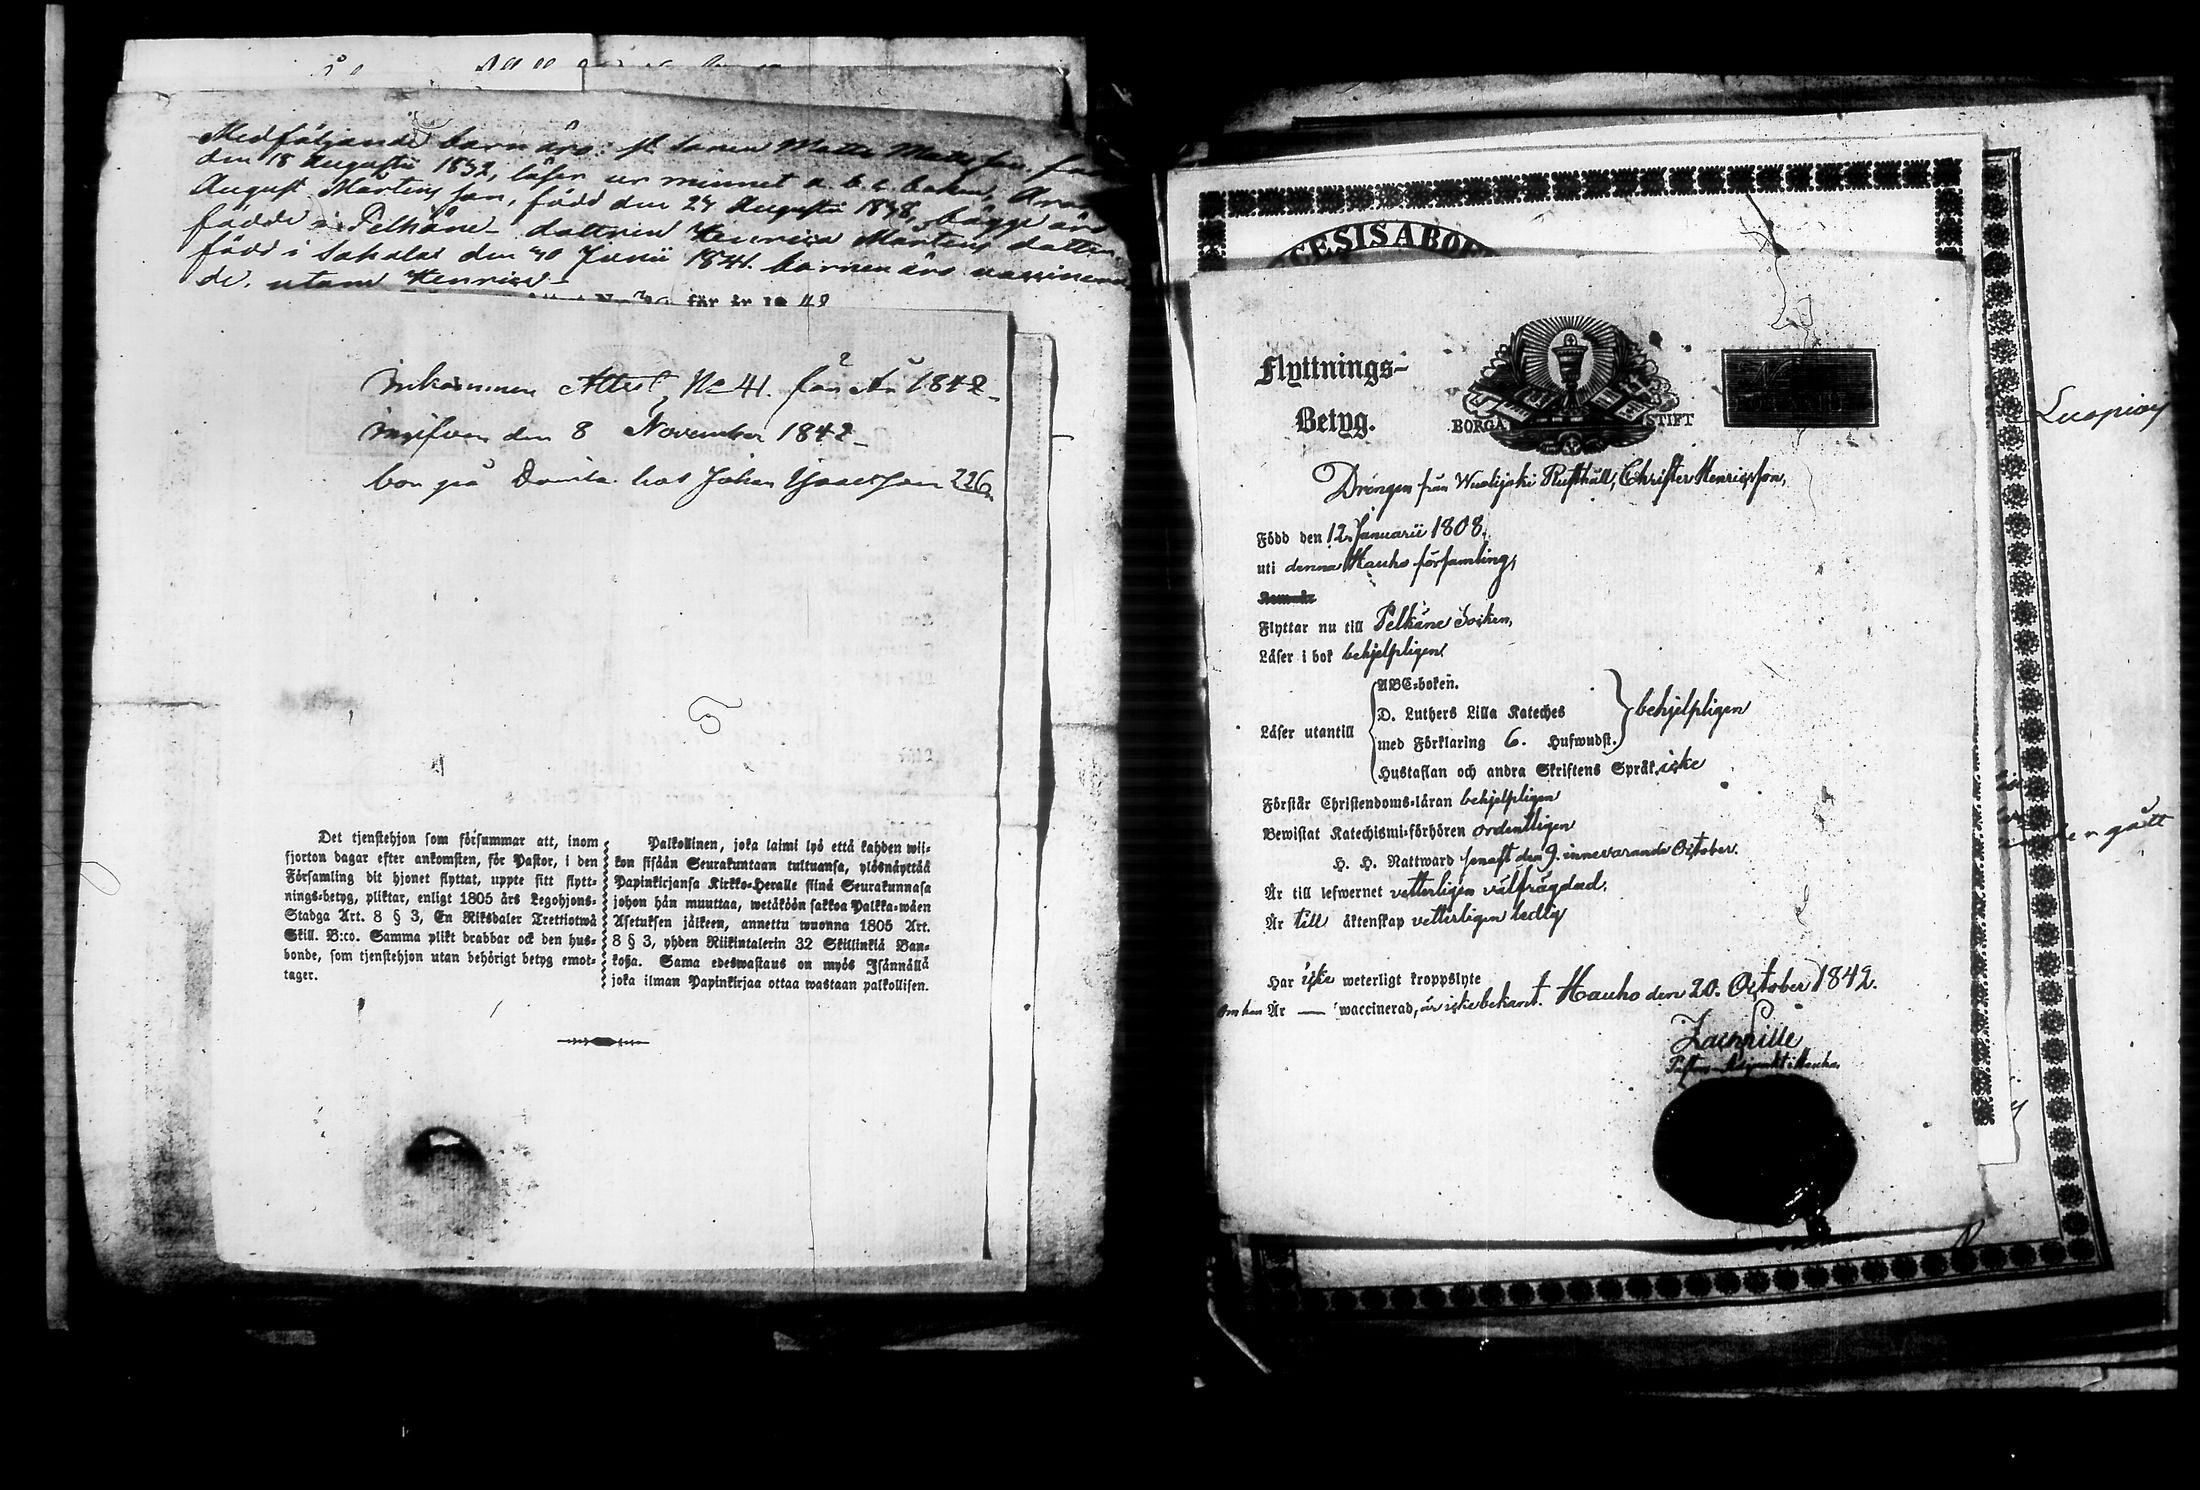 Medföljande barn äro: st. sonen Matts Matts son
den 18 Augusti 1832, läser ur minnet a. b. c. boken,
August Mårtens son, född den 24 Augusti 1838, bägge äro
födde i Pelkäne dottren Henrica Mårtens dotter
född i Sahalax den 30 Junii 1841. barnen äro vaccinera
de. utom Henrica
för år 1842
Inkommen Attest No 41. för År 1842
Ingifven den 8 November 1842
bor på hos Johan 226
Det tjenstehjon som försummar att, inom
fjorton dagar efter ankomsten, för Pastor, i den
Församling dit hjonet flyttat, uppte sitt flytt-
nings-betyg, pliktar, enligt 1805 års Legohjons-
Stadga Art. 8 § 3, En Riksdaler Trettiotwå
Skill. B:co. Samma plikt drabbar ock den hus-
bonde, som tjenstehjon utan behörigt betyg emot-
tager.
Palkollinen, joka laimi lyö että kahden wii-
kon sisään Seurakuntaan tultuansa, ylösnäyttää
Papinkirjansa Kirkko-Heralle siinä Seurakunnasa
johon hän muuttaa, wetäköön sakkoa Palkka-wäen
Asetuksen jälkeen, annettu wuonna 1805 Art.
8 § 3, yhden Riikintalerin 32 Skillinkiä Ban-
kosa. Sama edeswastaus on myös Isännällä
joka ilman Papinkirjaa ottaa wastaan palkollisen.
CESIS ABO
Flyttnings-
Betyg.
BORGÅ STIFT
Drengen från Wuolijoki Rusthåll, Christer Henricsson,
Född den 12. Januarii 1808.
uti denna Hauho församling,
Flyttar nu till Pelkäne Socken,
Läser i bok behjelpligen
Läser utantill
ABC-boken.
D. Luthers Lilla Kateches
med Förklaring 6. Hufwudst.
behjelpligen
Hustaflan och andra Skriftens Språk, icke
Förstår Christendoms-läran behjelpligen
Bewistat Katechismi-förhören ordentligen
H. H. Nattward senast den 9. innevarande October.
Är till lefwernet vetterligen välfrägdad.
Är till äktenskap vetterligen ledig
Har icke weterligt kroppslyte
Om han Är — waccinerad, är icke bekant. Hauho den 20. October 1842.
Hauho.
Luopioi
gått